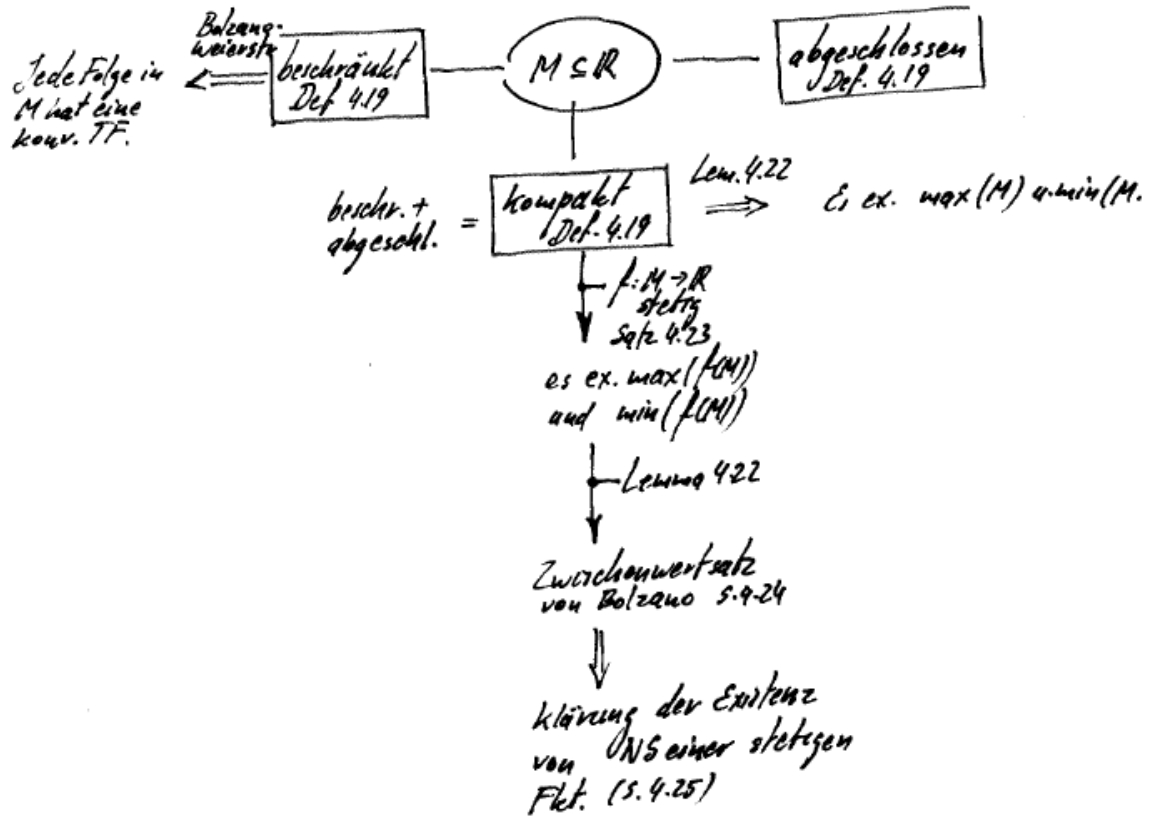 Bolzano-
weierstr.
Jede Folge in
M hat eine
konv. TF.
beschränkt
Def 4.19
M ⊆ ℝ
abgeschlossen
Def. 4.19
beschr. +
abgeschl.
=
kompakt
Def. 4.19
Lem. 4.22
Es ex. max (M) u. min (M.
f: M → ℝ
stetig
Satz 4.23
es ex. max (f(M))
und min (f(M))
Lemma 4.22
Zwischenwertsatz
von Bolzano S.4.24
klärung der Existenz
von NS einer stetigen
Fkt. (S. 4.25)